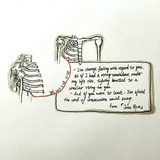 - I've strange feeling with regard to you.
As if I had a string somewhere under
my left ribs, tightly knotted to a
similar string in you.
- And if you were to leave, I'm afraid
the cord of communion would snap.
From "Jane Eyre"